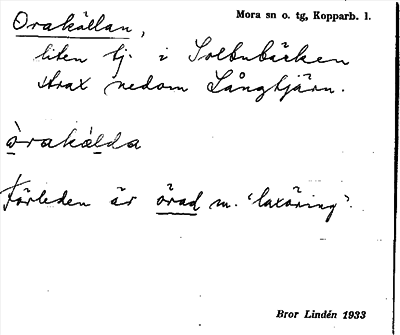 Orakällan,
Mora sn o. tg, Kopparb. l.
liten tj. i Solbnbäcken
strax nedom Långtjärn.
òrakèlda
Förleden är örad m. 'laxöring'.
Bror Lindén 1933